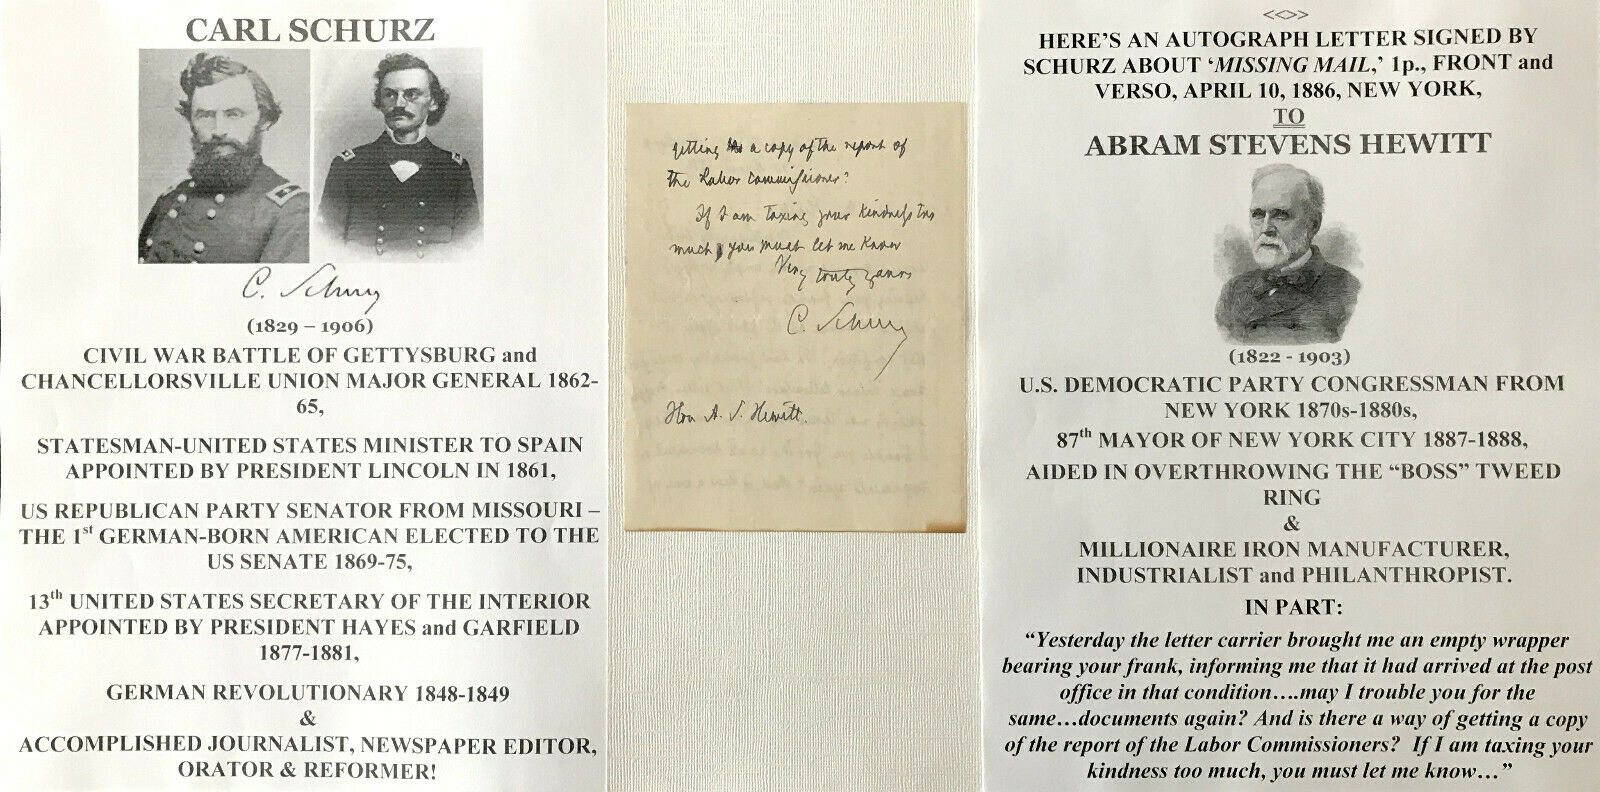 CARL SCHURZ
C. Schurz
(1829 – 1906)
CIVIL WAR BATTLE OF GETTYSBURG and
CHANCELLORSVILLE UNION MAJOR GENERAL 1862-
65,
STATESMAN-UNITED STATES MINISTER TO SPAIN
APPOINTED BY PRESIDENT LINCOLN IN 1861,
US REPUBLICAN PARTY SENATOR FROM MISSOURI –
THE 1st GERMAN-BORN AMERICAN ELECTED TO THE
US SENATE 1869-75,
13th UNITED STATES SECRETARY OF THE INTERIOR
APPOINTED BY PRESIDENT HAYES and GARFIELD
1877-1881,
GERMAN REVOLUTIONARY 1848-1849
&
ACCOMPLISHED JOURNALIST, NEWSPAPER EDITOR,
ORATOR & REFORMER!
getting a copy of the report of
the Labor Commissioner?
If I am taxing your kindness too
much, you must let me know
Very truly yours
C. Schurz
Hon A. S. Hewitt.
<<>>
HERE'S AN AUTOGRAPH LETTER SIGNED BY
SCHURZ ABOUT ‘MISSING MAIL,’ 1p., FRONT and
VERSO, APRIL 10, 1886, NEW YORK,
TO
ABRAM STEVENS HEWITT
(1822 - 1903)
U.S. DEMOCRATIC PARTY CONGRESSMAN FROM
NEW YORK 1870s-1880s,
87th MAYOR OF NEW YORK CITY 1887-1888,
AIDED IN OVERTHROWING THE “BOSS” TWEED
RING
&
MILLIONAIRE IRON MANUFACTURER,
INDUSTRIALIST and PHILANTHROPIST.
IN PART:
“Yesterday the letter carrier brought me an empty wrapper
bearing your frank, informing me that it had arrived at the post
office in that condition….may I trouble you for the
same…documents again? And is there a way of getting a copy
of the report of the Labor Commissioners? If I am taxing your
kindness too much, you must let me know…”